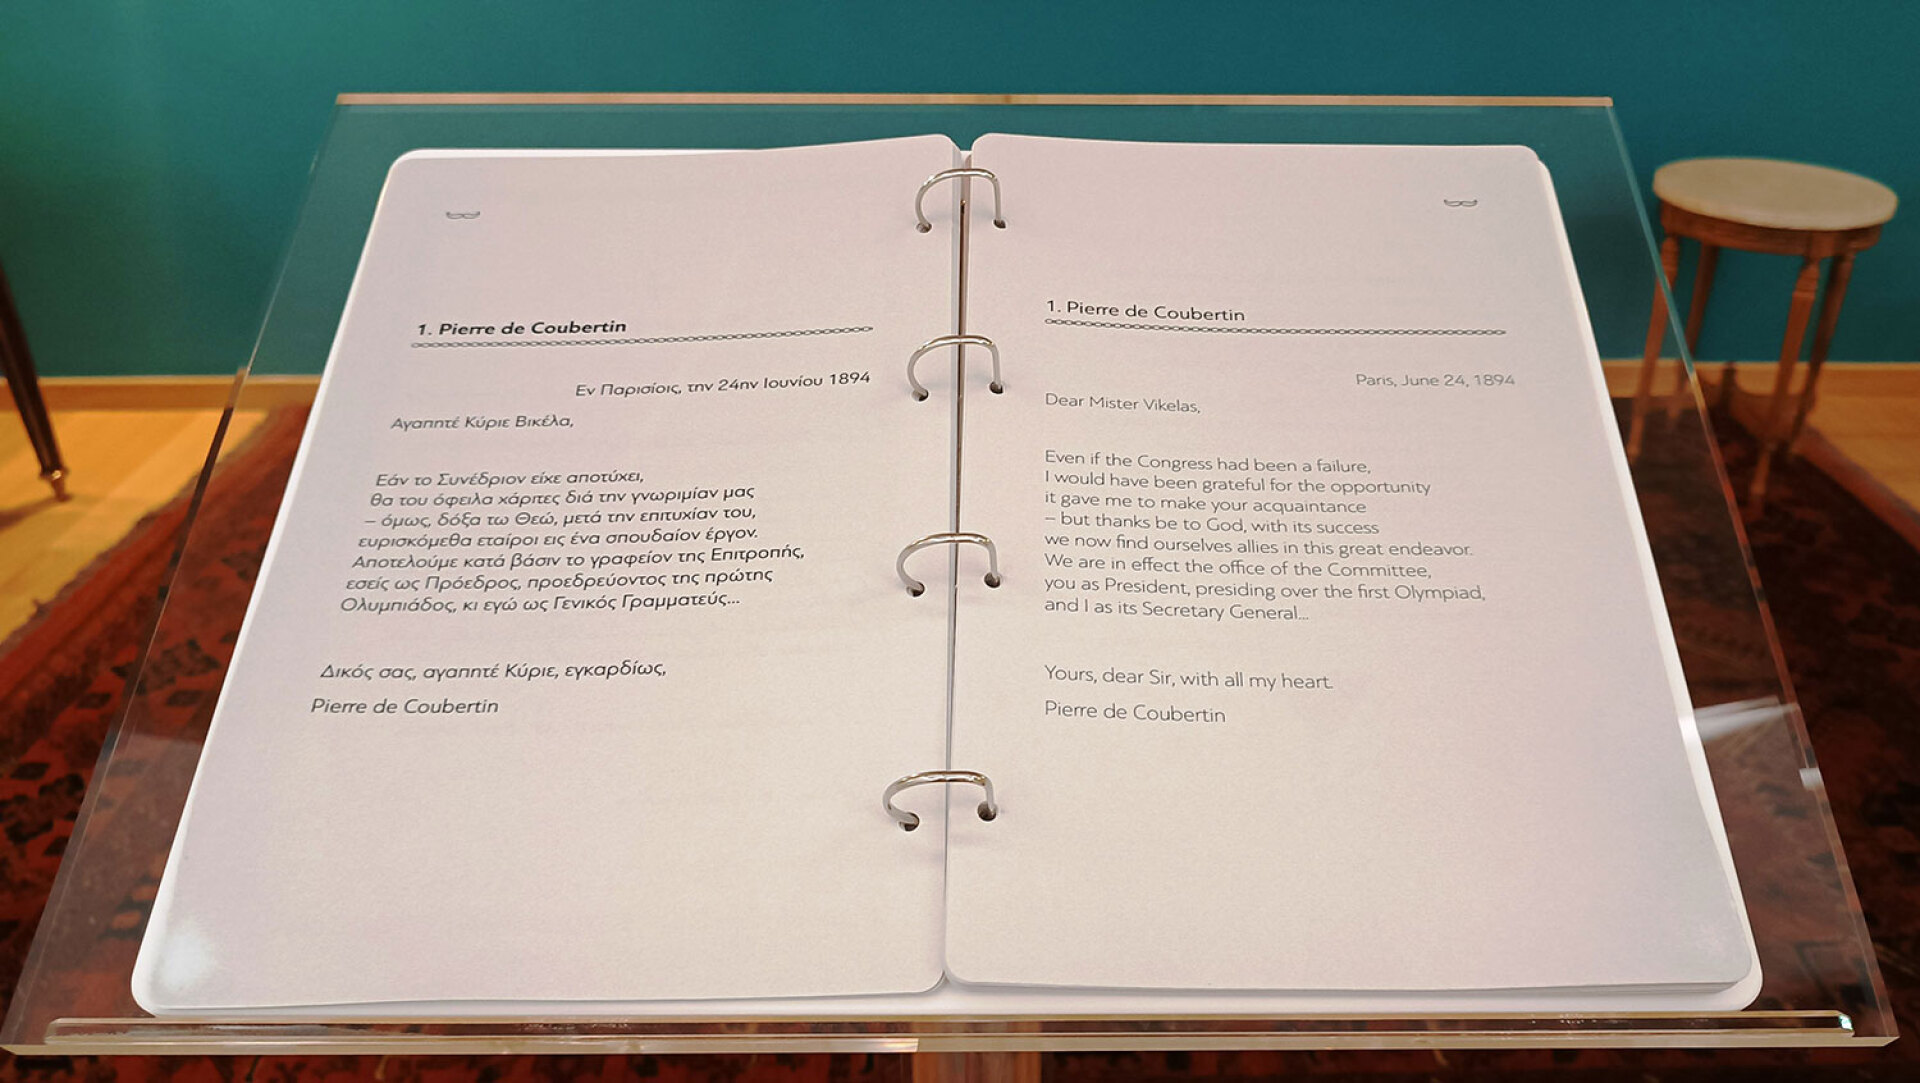 1. Pierre de Coubertin
Εν Παρισίοις, την 24ην Ιουνίου 1894
Αγαπητέ Κύριε Βικέλα,
Εάν το Συνέδριον είχε αποτύχει,
θα του όφειλα χάριτες διά την γνωριμίαν μας
– όμως, δόξα τω Θεώ, μετά την επιτυχίαν του,
ευρισκόμεθα εταίροι εις ένα σπουδαίον έργον.
Αποτελούμε κατά βάσιν το γραφείον της Επιτροπής,
εσείς ως Πρόεδρος, προεδρεύοντος της πρώτης
Ολυμπιάδος, κι εγώ ως Γενικός Γραμματεύς...
Δικός σας, αγαπητέ Κύριε, εγκαρδίως,
Pierre de Coubertin
1. Pierre de Coubertin
Paris, June 24, 1894
Dear Mister Vikelas,
Even if the Congress had been a failure,
I would have been grateful for the opportunity
it gave me to make your acquaintance
– but thanks be to God, with its success
we now find ourselves allies in this great endeavor.
We are in effect the office of the Committee,
you as President, presiding over the first Olympiad,
and I as its Secretary General...
Yours, dear Sir, with all my heart.
Pierre de Coubertin